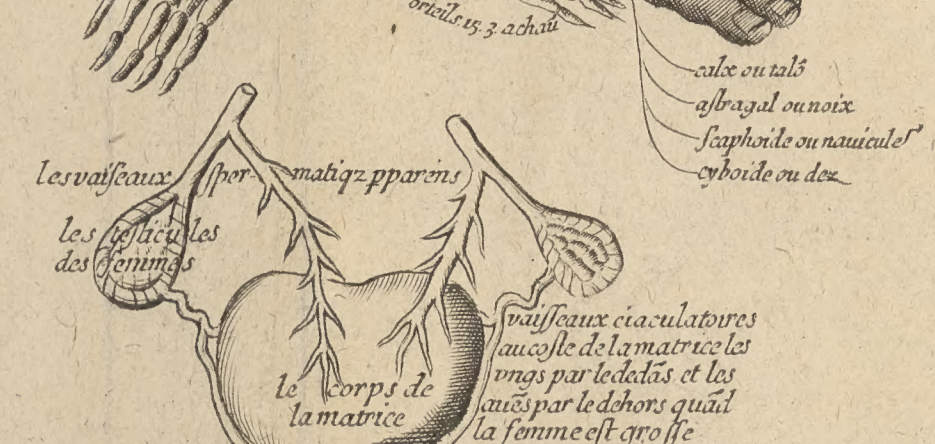 orteils. 15. 3. a chaū
calx ou talō
aſtragal ou noix
ſcaphoide ou nauicule
cyboide ou dez
les vaiſeaux ſper matiqz pparens
les teſticules
des femmes
vaiſſeaux eiaculatoires
au coſte de la matrice les
vngs par le dedās et les
auēs par le dehors quād
la femme eſt groſſe
le corps de
la matrice